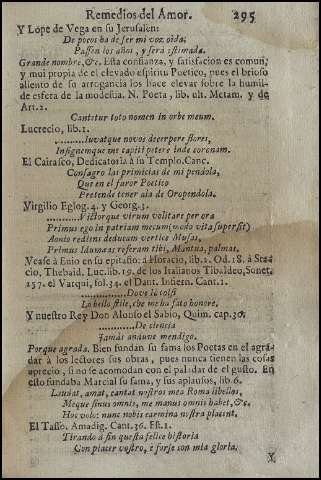 Remedios del Amor. 295
Y Lope de Vega en su Jerusalen:
De pocos ha de ser mi voz oida;
Passen los años, y será estimada.
Grande nombre, &c. Esta confianza, y satisfacion es comun,
y mui propia de el elevado espiritu Poetico, pues el brioso
aliento de su arrogancia los hace elevar sobre la humil-
de esfera de la modestia. N. Poeta, lib. ult. Metam. y de
Art. 2.
Cantetur toto nomen in orbe meum.
Lucrecio, lib. 1.
Iuvatque novos decerpere flores,
Insignemque meo capiti petere inde coronam.
El Cairasco, Dedicatoria à su Templo. Canc.
Consagro las primicias de mi pendola,
Que en el furor Poetico
Pretende tener ala de Oropendola.
Virgilio Eglog. 4. y Georg. 3.
Victorque virum volitare per ora
Primus ego in patriam mecum (modo vita supersit)
Aonio rediens deducam vertice Musas,
Primus Idumæas referam tibi, Mantua, palmas.
Vease à Enio en su epitafio: à Horacio, lib. 1. Od. 18. à Sta-
cio, Thebaid. Luc. lib. 19. de los Italianos Tibaldeo, Sonet.
257. el Varqui, fol. 34. el Dant. Infiern. Cant. 1.
Dove io tolsi
Lo bello stile, che me ha fato honore.
Y nuestro Rey Don Alonso el Sabio, Quim. cap. 30.
De ciencia
Jamás aniune mendigo.
Porque agrada. Bien fundan su fama los Poetas en el agra-
dar à los lectores sus obras, pues nunca tienen las cosas
aprecio, si no se acomodan con el paladar de el gusto. En
esto fundaba Marcial su fama, y sus aplausos, lib. 6.
Laudat, amat, cantat nostros mea Roma libellos,
Meque sinus omnis, me manus omnis habet, &c.
Hoc volo: nunc nobis carmina nostra placent.
El Tasso. Amadig. Cant. 36. Est. 1.
Tirando à fin questa felice historia
Con piacer vostro, è forse con mia gloria.